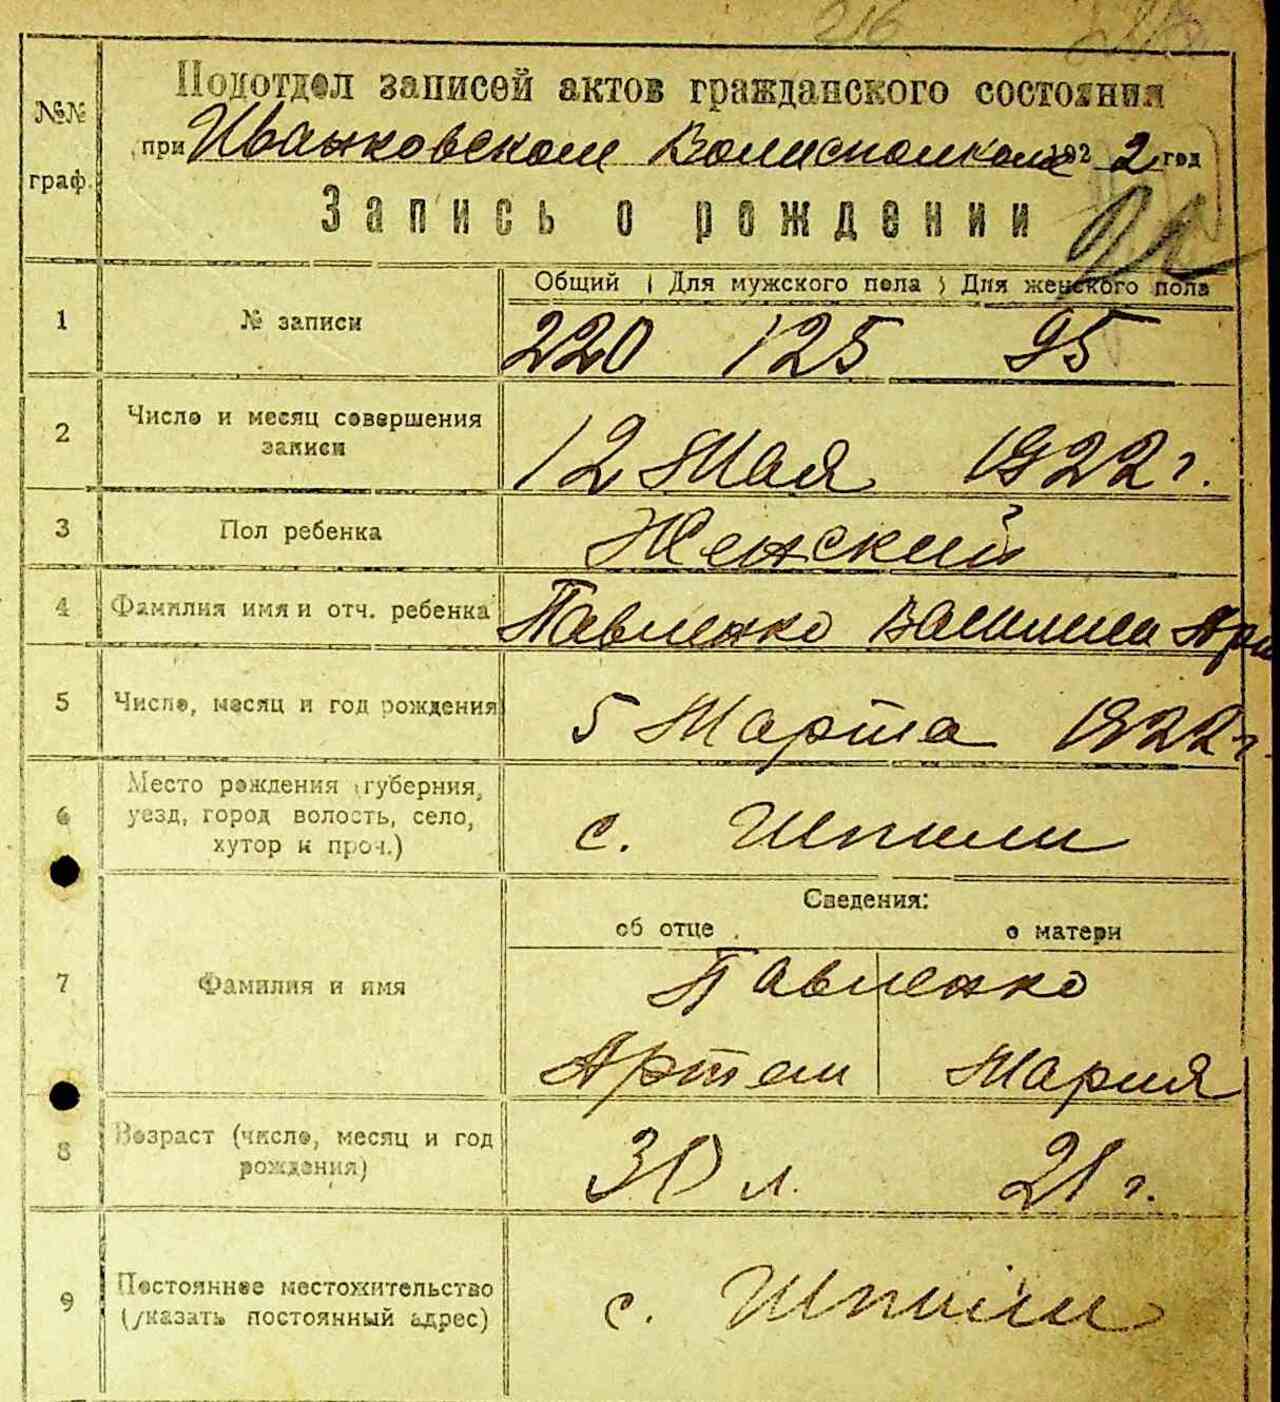 216
№№ граф.
Подотдел записей актов гражданского состояния
при Иванковском Волисполкоме 1922 год
Запись о рождении
Общий Для мужского пола Для женского пола
1 № записи 220 125 95
2 Число и месяц совершения записи 12 Мая 1922 г.
3 Пол ребенка Женский
4 Фамилия имя и отч. ребенка Павленко
5 Число, месяц и год рождения 5 Марта 1922 г.
6 Место рождения (губерния, уезд, город волость, село, хутор и проч.) с. Шпили
Сведения:
об отце о матери
7 Фамилия и имя Павленко
Артем Мария
8 Возраст (число, месяц и год рождения) 30 л. 21 г.
9 Постоянное местожительство (указать постоянный адрес) с. Шпили